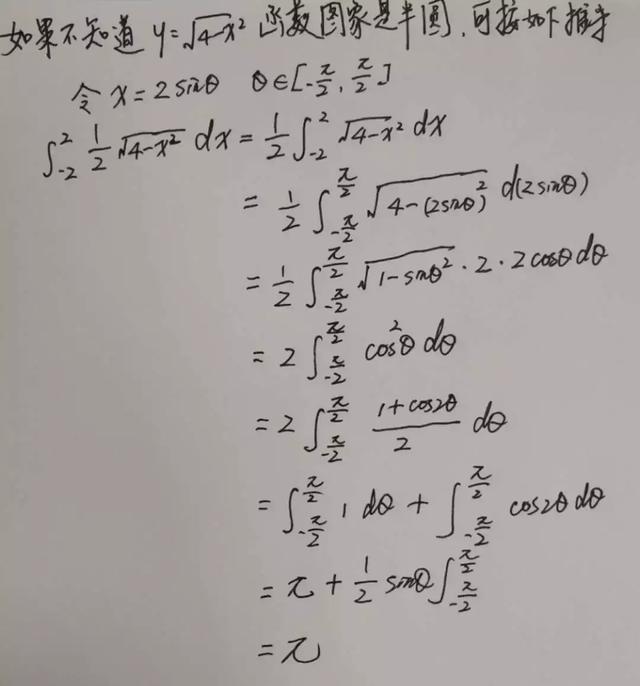 如果不知道 y=√4-x² 函数图象是半圆,可按如下推导
令 x=2sinθ θ∈[-π/2, π/2]
∫_{-2}^{2} 1/2 √4-x² dx = 1/2 ∫_{-2}^{2} √4-x² dx
= 1/2 ∫_{-π/2}^{π/2} √4-(2sinθ)² d(2sinθ)
= 1/2 ∫_{-π/2}^{π/2} √1-sinθ² · 2 · 2cosθ dθ
= 2 ∫_{-π/2}^{π/2} cos²θ dθ
= 2 ∫_{-π/2}^{π/2} (1+cos2θ)/2 dθ
= ∫_{-π/2}^{π/2} 1 dθ + ∫_{-π/2}^{π/2} cos2θ dθ
= π + 1/2 sinθ ∫_{-π/2}^{π/2}
= π